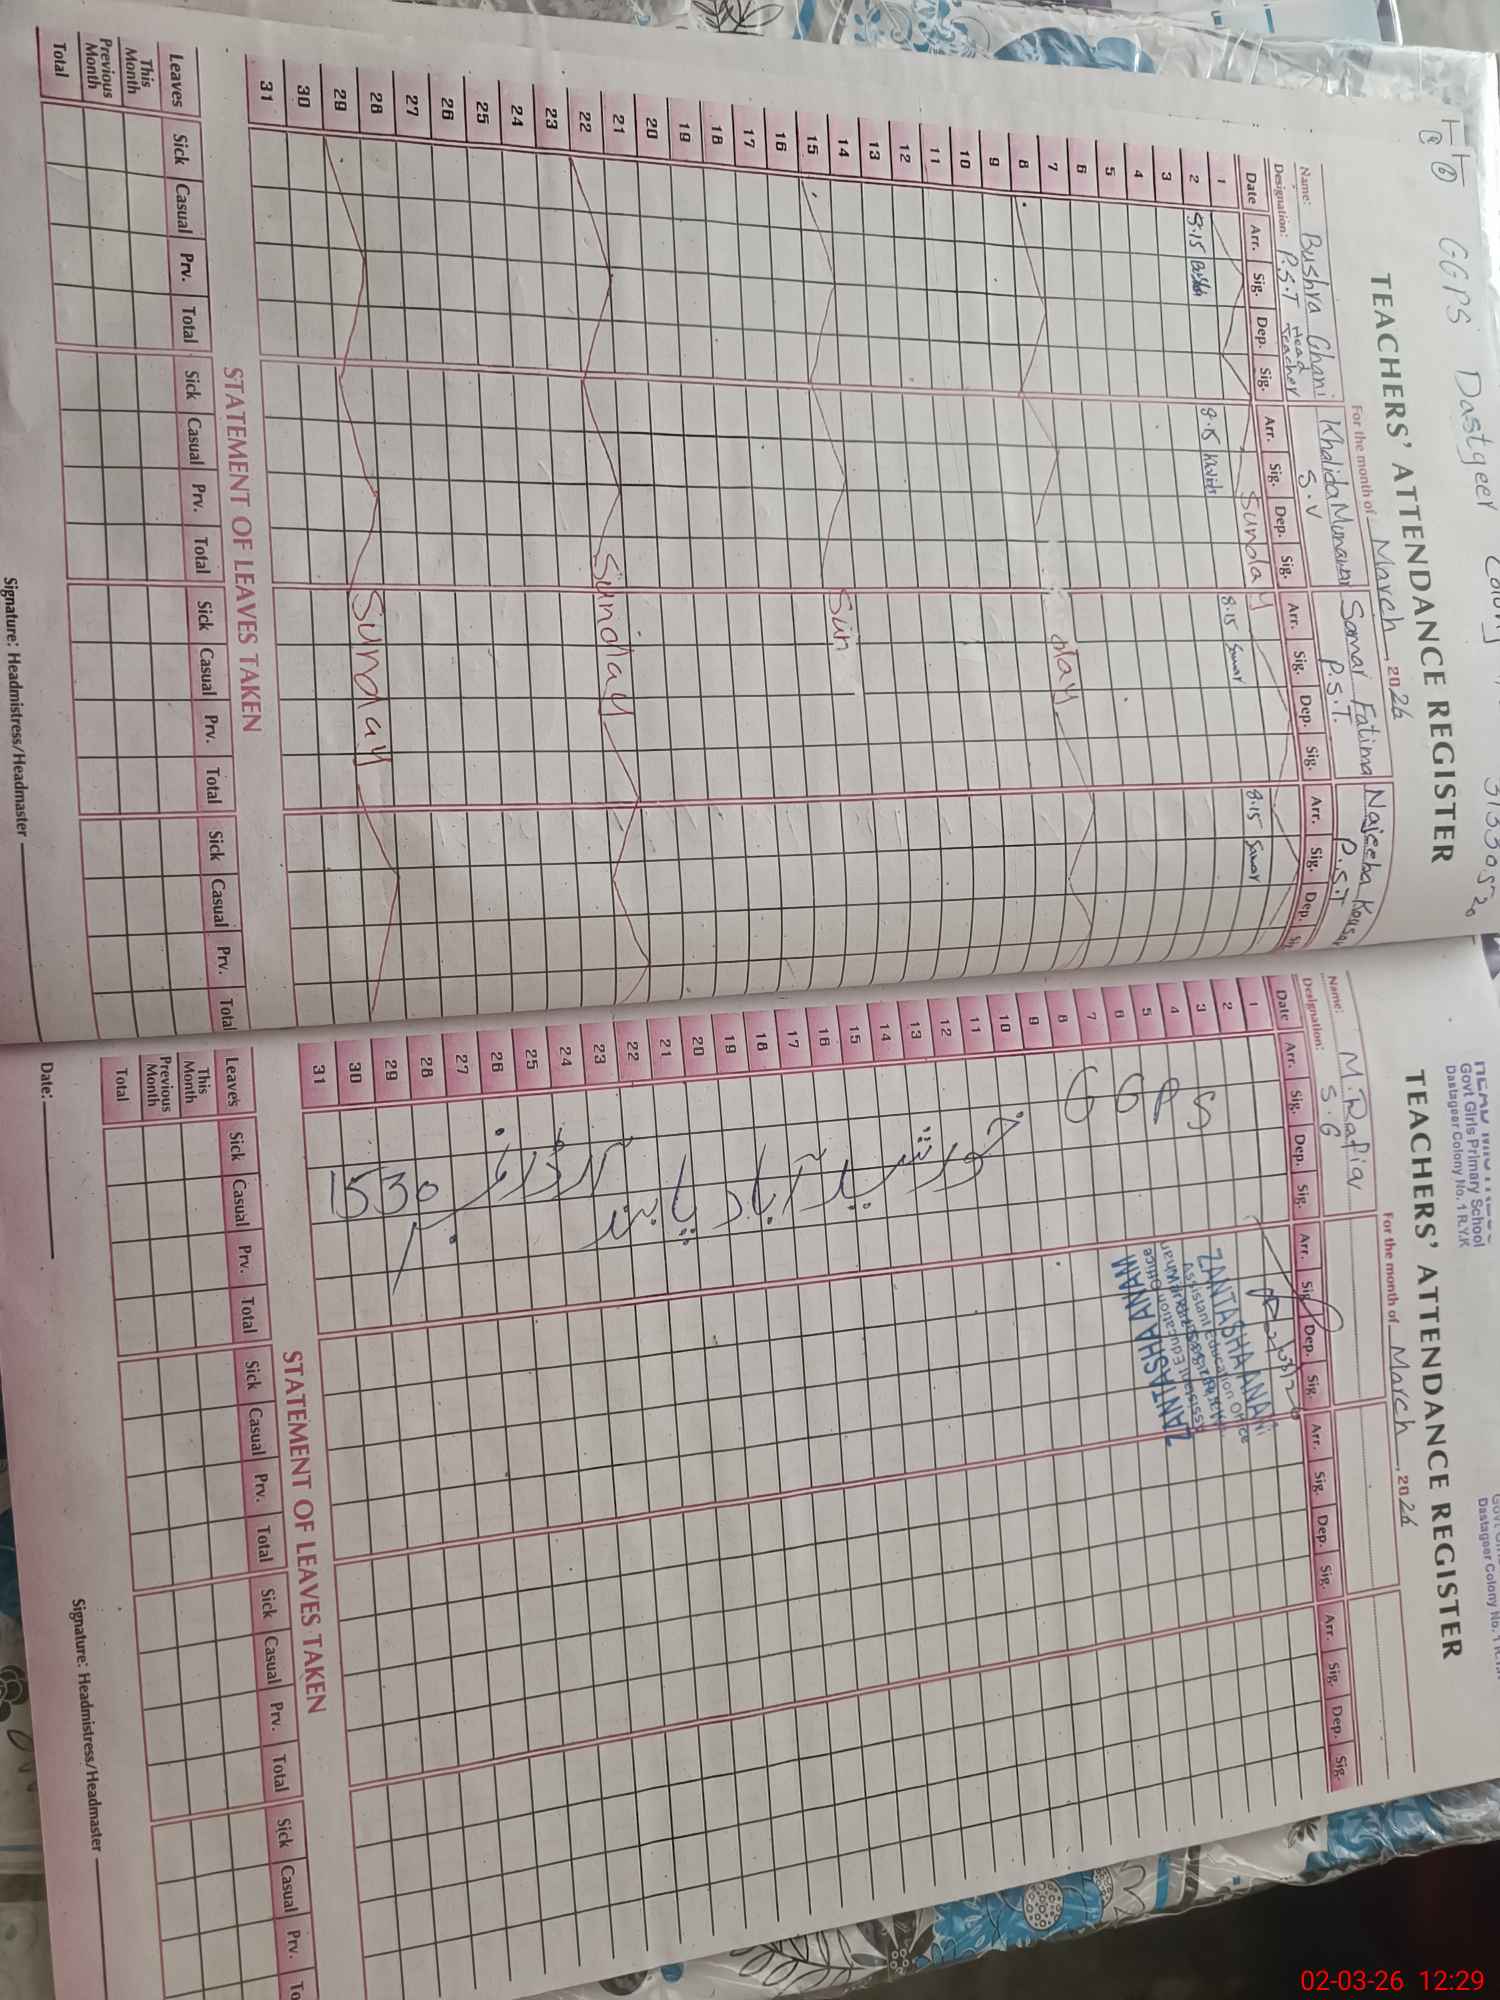 GGPS Dastgeer Colony
31330520
TEACHERS' ATTENDANCE REGISTER
For the month of March, 2026
Name: Bushra Ghani
Khalida Munawar
Samar Fatima
Najeeba Kousar
Designation: P.S.T Head Teacher
S.V
P.S.T.
P.S.T
Date Arr. Sig. Dep. Sig. Arr. Sig. Dep. Sig. Arr. Sig. Dep. Sig. Arr. Sig. Dep.
1 Sunday
2 8.15 8.15 8:15 Samar 8.15 Samar
3
4
5
6
7
8 day
9
10
11
12
13
14
15 Sun
16
17
18
19
20
21
22 Sunday
23
24
25
26
27
28
29 Sunday
30
31
STATEMENT OF LEAVES TAKEN
Leaves Sick Casual Prv. Total Sick Casual Prv. Total Sick Casual Prv. Total Sick Casual Prv. Total
This Month
Previous Month
Total
Signature: Headmistress/Headmaster
Govt Girls Primary School
Dastageer Colony No. 1 R.Y.K
Dastageer Colony No. 1
TEACHERS' ATTENDANCE REGISTER
For the month of March, 2026
Name: M. Rafia
Designation: S.G
Date Arr. Sig. Dep. Sig. Arr. Sig. Dep. Sig. Arr. Sig. Dep. Sig. Arr. Sig. Dep. Sig.
1
2
3
4
5
6
7
8
9
10
11
12
13
14
15
16
17
18
19
20
21
22
23
24
25
26
27
28
29
30
31
GGPS
1530
ZANTASHA ANAM
Assistant Education Office
ZANTASHA ANAM
Assistant Education Office
STATEMENT OF LEAVES TAKEN
Leaves Sick Casual Prv. Total Sick Casual Prv. Total Sick Casual Prv. Total Sick Casual Prv.
This Month
Previous Month
Total
Date:
Signature: Headmistress/Headmaster
02-03-26 12:29